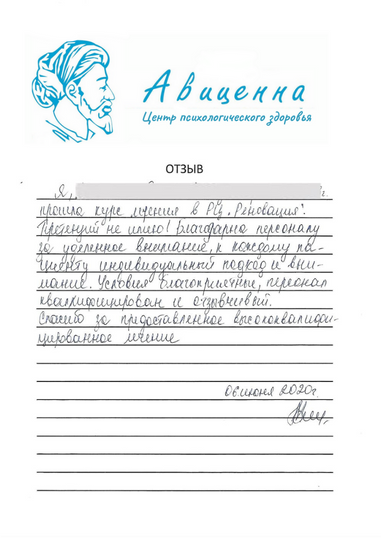 Авиценна
Центр психологического здоровья
ОТЗЫВ
Я, г.
прошла курс лечения в РЦ „Реновация".
Претензий не имею! Благодарна персоналу
за уделенное внимание, к каждому па-
циенту индивидуальный подход и вни-
мание. Условия благоприятные, персонал
квалифицирован и отзывчивый.
Спасибо за предоставленное высококвалифи-
цированное лечение
06 июня 2020г.